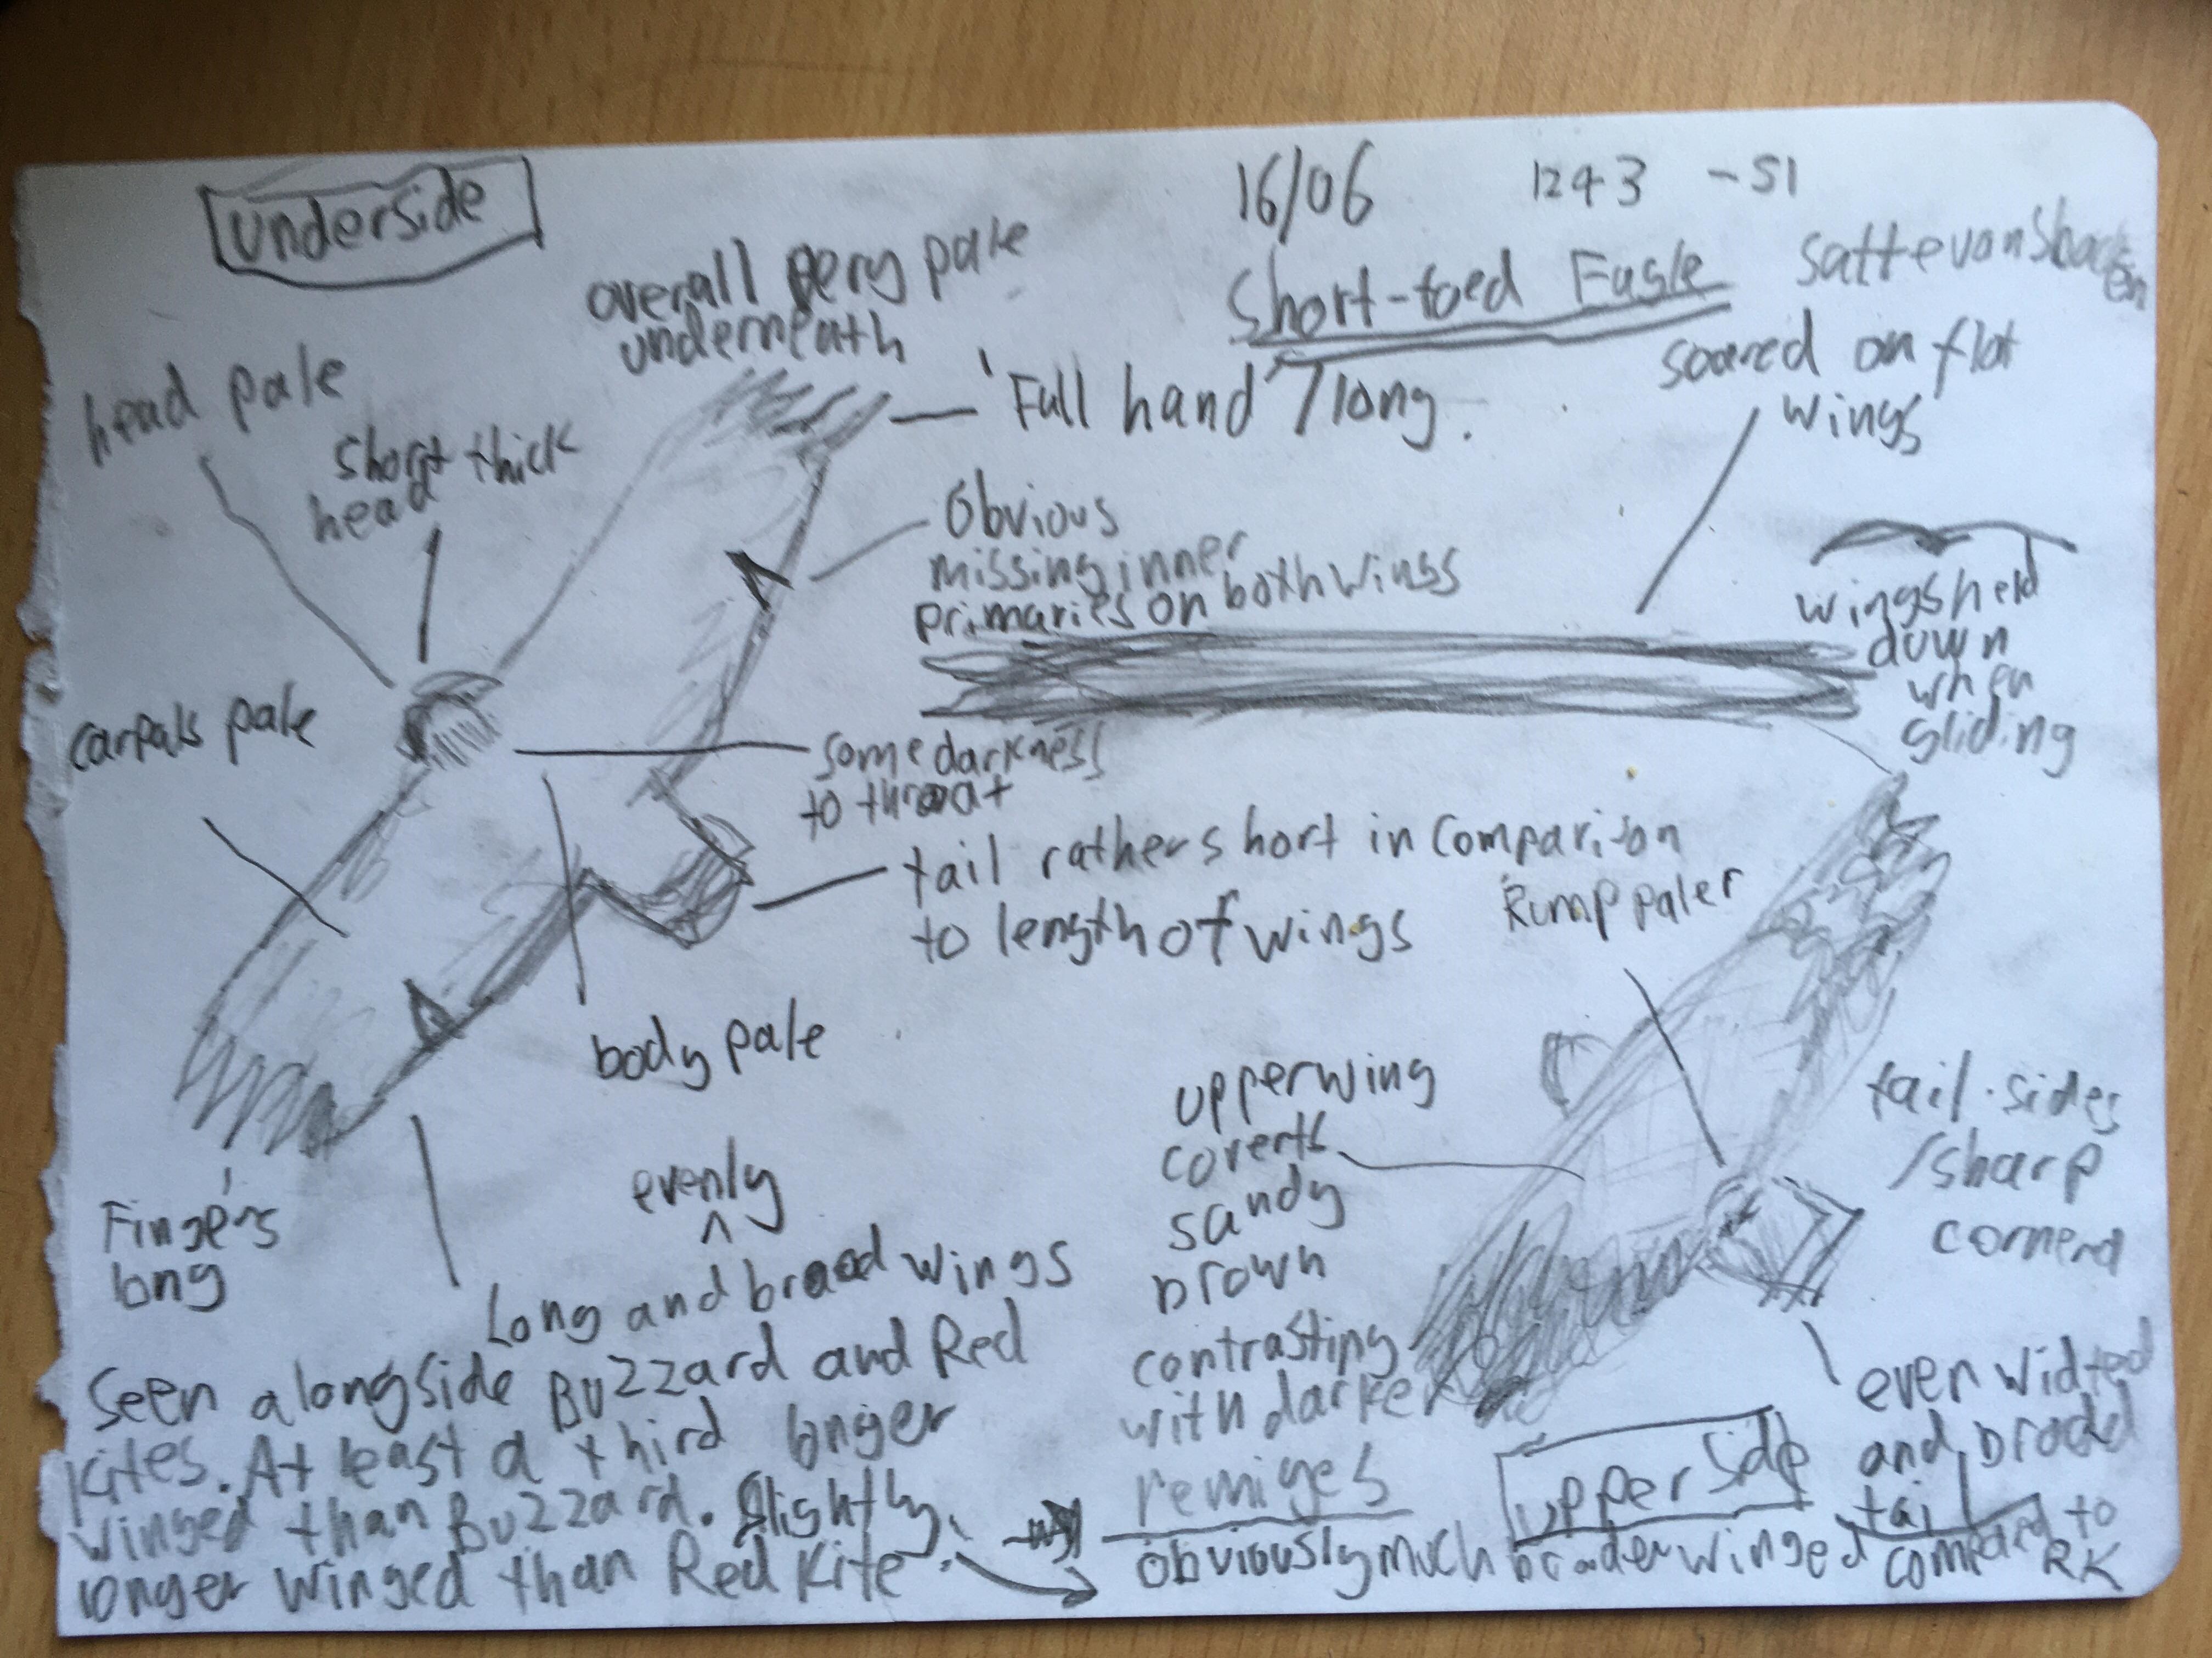 underside
16/06 1243 - 51
Short-toed Eagle
Sattevansbacken
overall very pale
underneath
'Full hand'/long.
soared on flat
wings
head pale
short thick
head
Obvious
missing inner
primaries on both wings
wings held
down
when
gliding
carpals pale
some darkness
to throat
tail rather short in comparison
to length of wings
Rump paler
body pale
upperwing
coverts
sandy
brown
contrasting
with darker
remiges
tail-sides
/sharp
cornerd
Fingers
long
evenly
^
Long and broad wings
even widted
and broad
tail
upper side
Seen alongside Buzzard and Red
Kites. At least a third longer
winged than Buzzard. Slightly
longer winged than Red Kite
obviously much broader winged compared to
RK